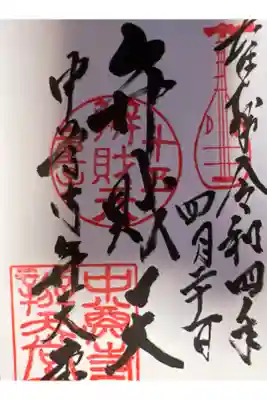 奉拝 令和四年
四月
弁財天
十五
辨財天
童子
中尊寺弁天堂
中尊寺
辨天堂